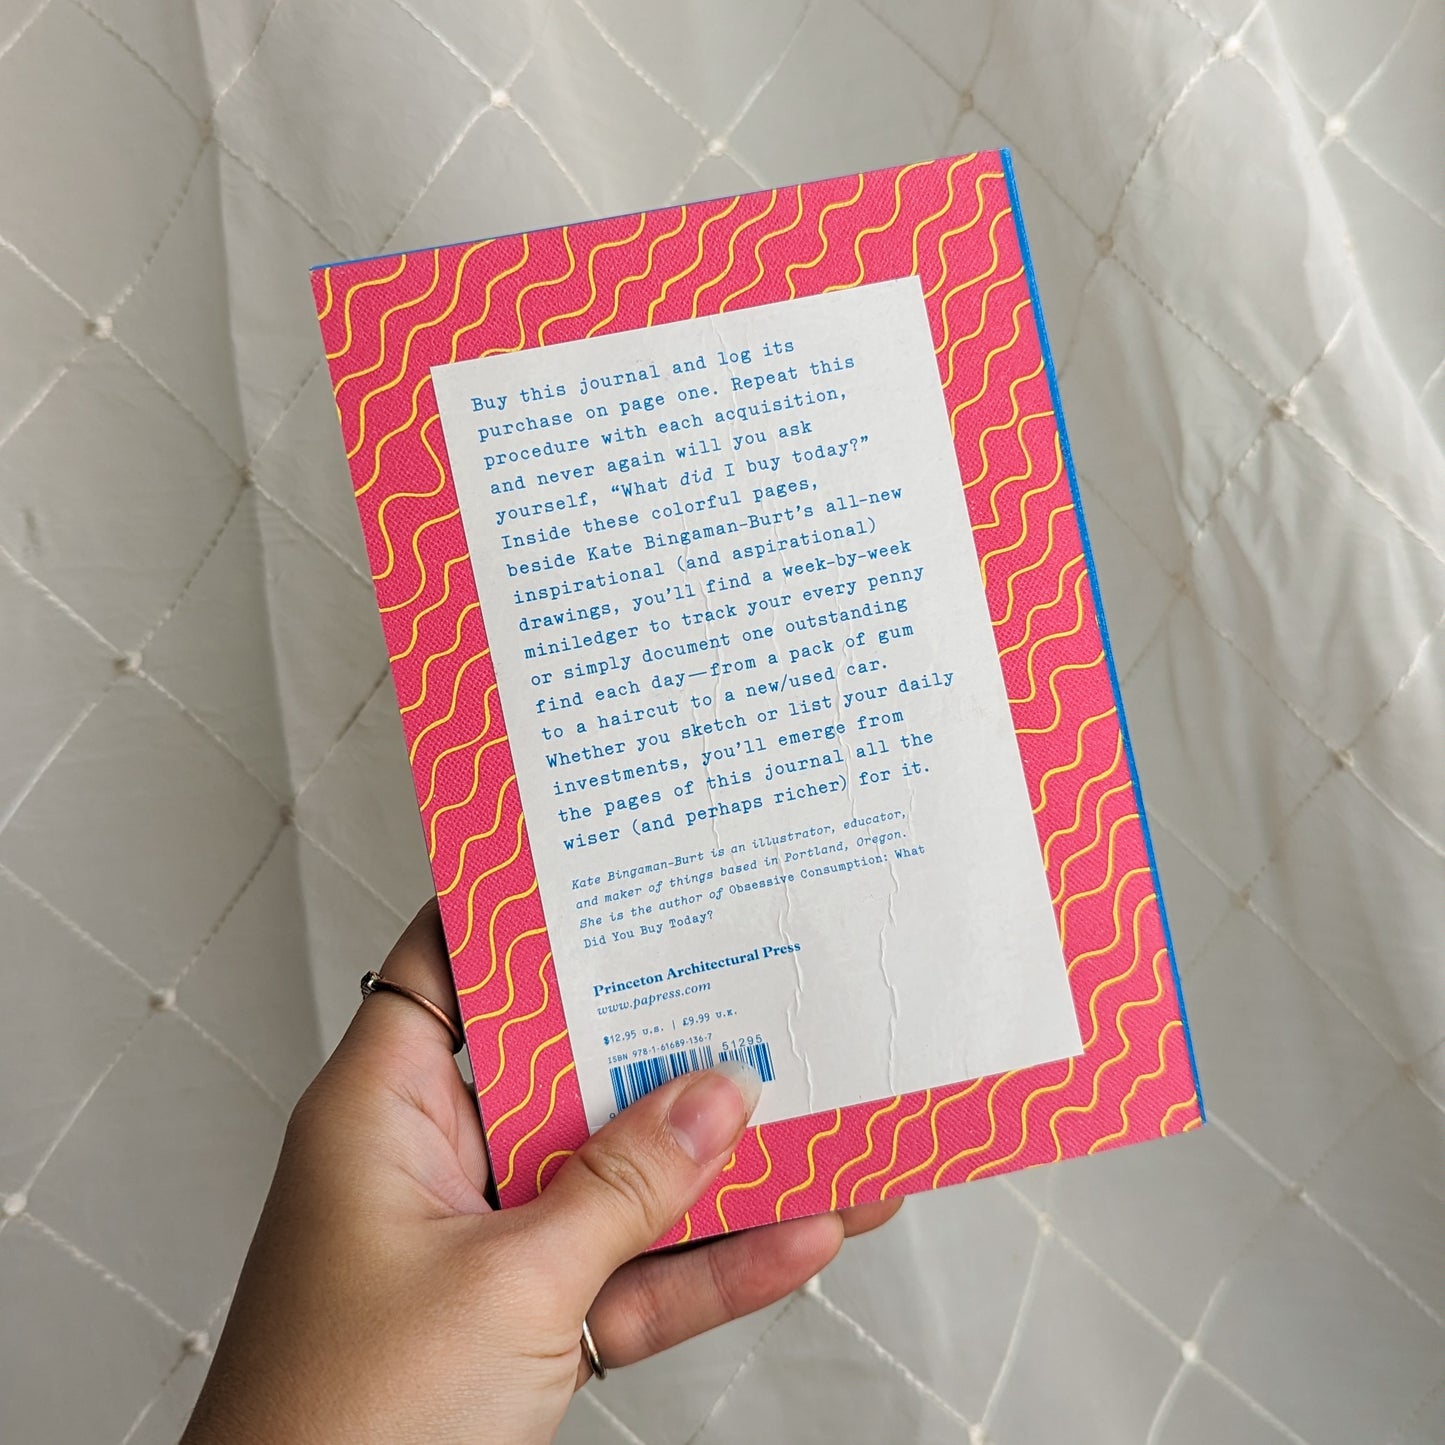 Buy this journal and log its
purchase on page one. Repeat this
procedure with each acquisition,
and never again will you ask
yourself, “What did I buy today?”
Inside these colorful pages,
beside Kate Bingaman-Burt’s all-new
inspirational (and aspirational)
drawings, you’ll find a week-by-week
miniledger to track your every penny
or simply document one outstanding
find each day—from a pack of gum
to a haircut to a new/used car.
Whether you sketch or list your daily
investments, you’ll emerge from
the pages of this journal all the
wiser (and perhaps richer) for it.
Kate Bingaman-Burt is an illustrator, educator,
and maker of things based in Portland, Oregon.
She is the author of Obsessive Consumption: What
Did You Buy Today?
Princeton Architectural Press
www.papress.com
$12.95 U.S. | £9.99 U.K.
ISBN 978-1-61689-136-7
51295
9